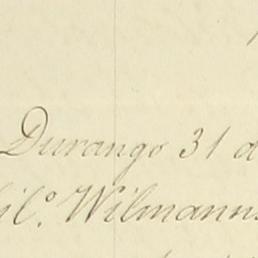 Durango 31 d
il.º Wilmanns